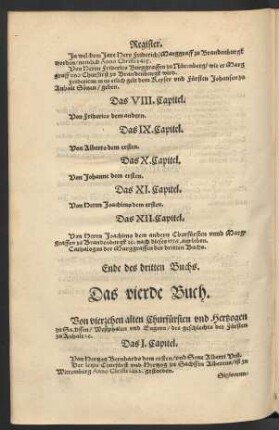 Register.
In welchem Jare Herr Friderich Marggraff zu Brandenburgk
worden / nemlich Anno Christi 1415.
Von Herrn Friderico Burggraffen zu Nürmberg / wie er Marg
graff vnd Churfürst zu Brandenburgk wird.
dem Keyser vnd Fürsten Johansen zu
Anhalt Sönen / geben.
Das VIII. Capitel.
Von Friderico dem andern.
Das IX. Capitel.
Von Alberto dem ersten.
Das X. Capitel.
Von Johanne dem ersten.
Das XI. Capitel.
Von Herrn Joachimo dem ersten.
Das XII. Capitel.
Von Herrn Joachimo dem andern Churfürsten vnnd Marg
graffen zu Brandenburgk
Catalogus der Marggraffen des dritten Buchs.
Ende des dritten Buchs.
Das vierde Buch.
Von vierzehen alten Churfürsten vnd Hertzogen
zu Sachssen / Westphalen vnd Engern / des geschlechts der Fürsten
zu Anhalt ꝛc.
Das I. Capitel.
Von Hertzog Bernhardo dem ersten / vnd Sone Alberti Vrsi.
Der letzte Churfürst vnd Hertzog zu Sachssen Albertus / ist zu
Wittemberg Anno Christi 1422. gestorben.